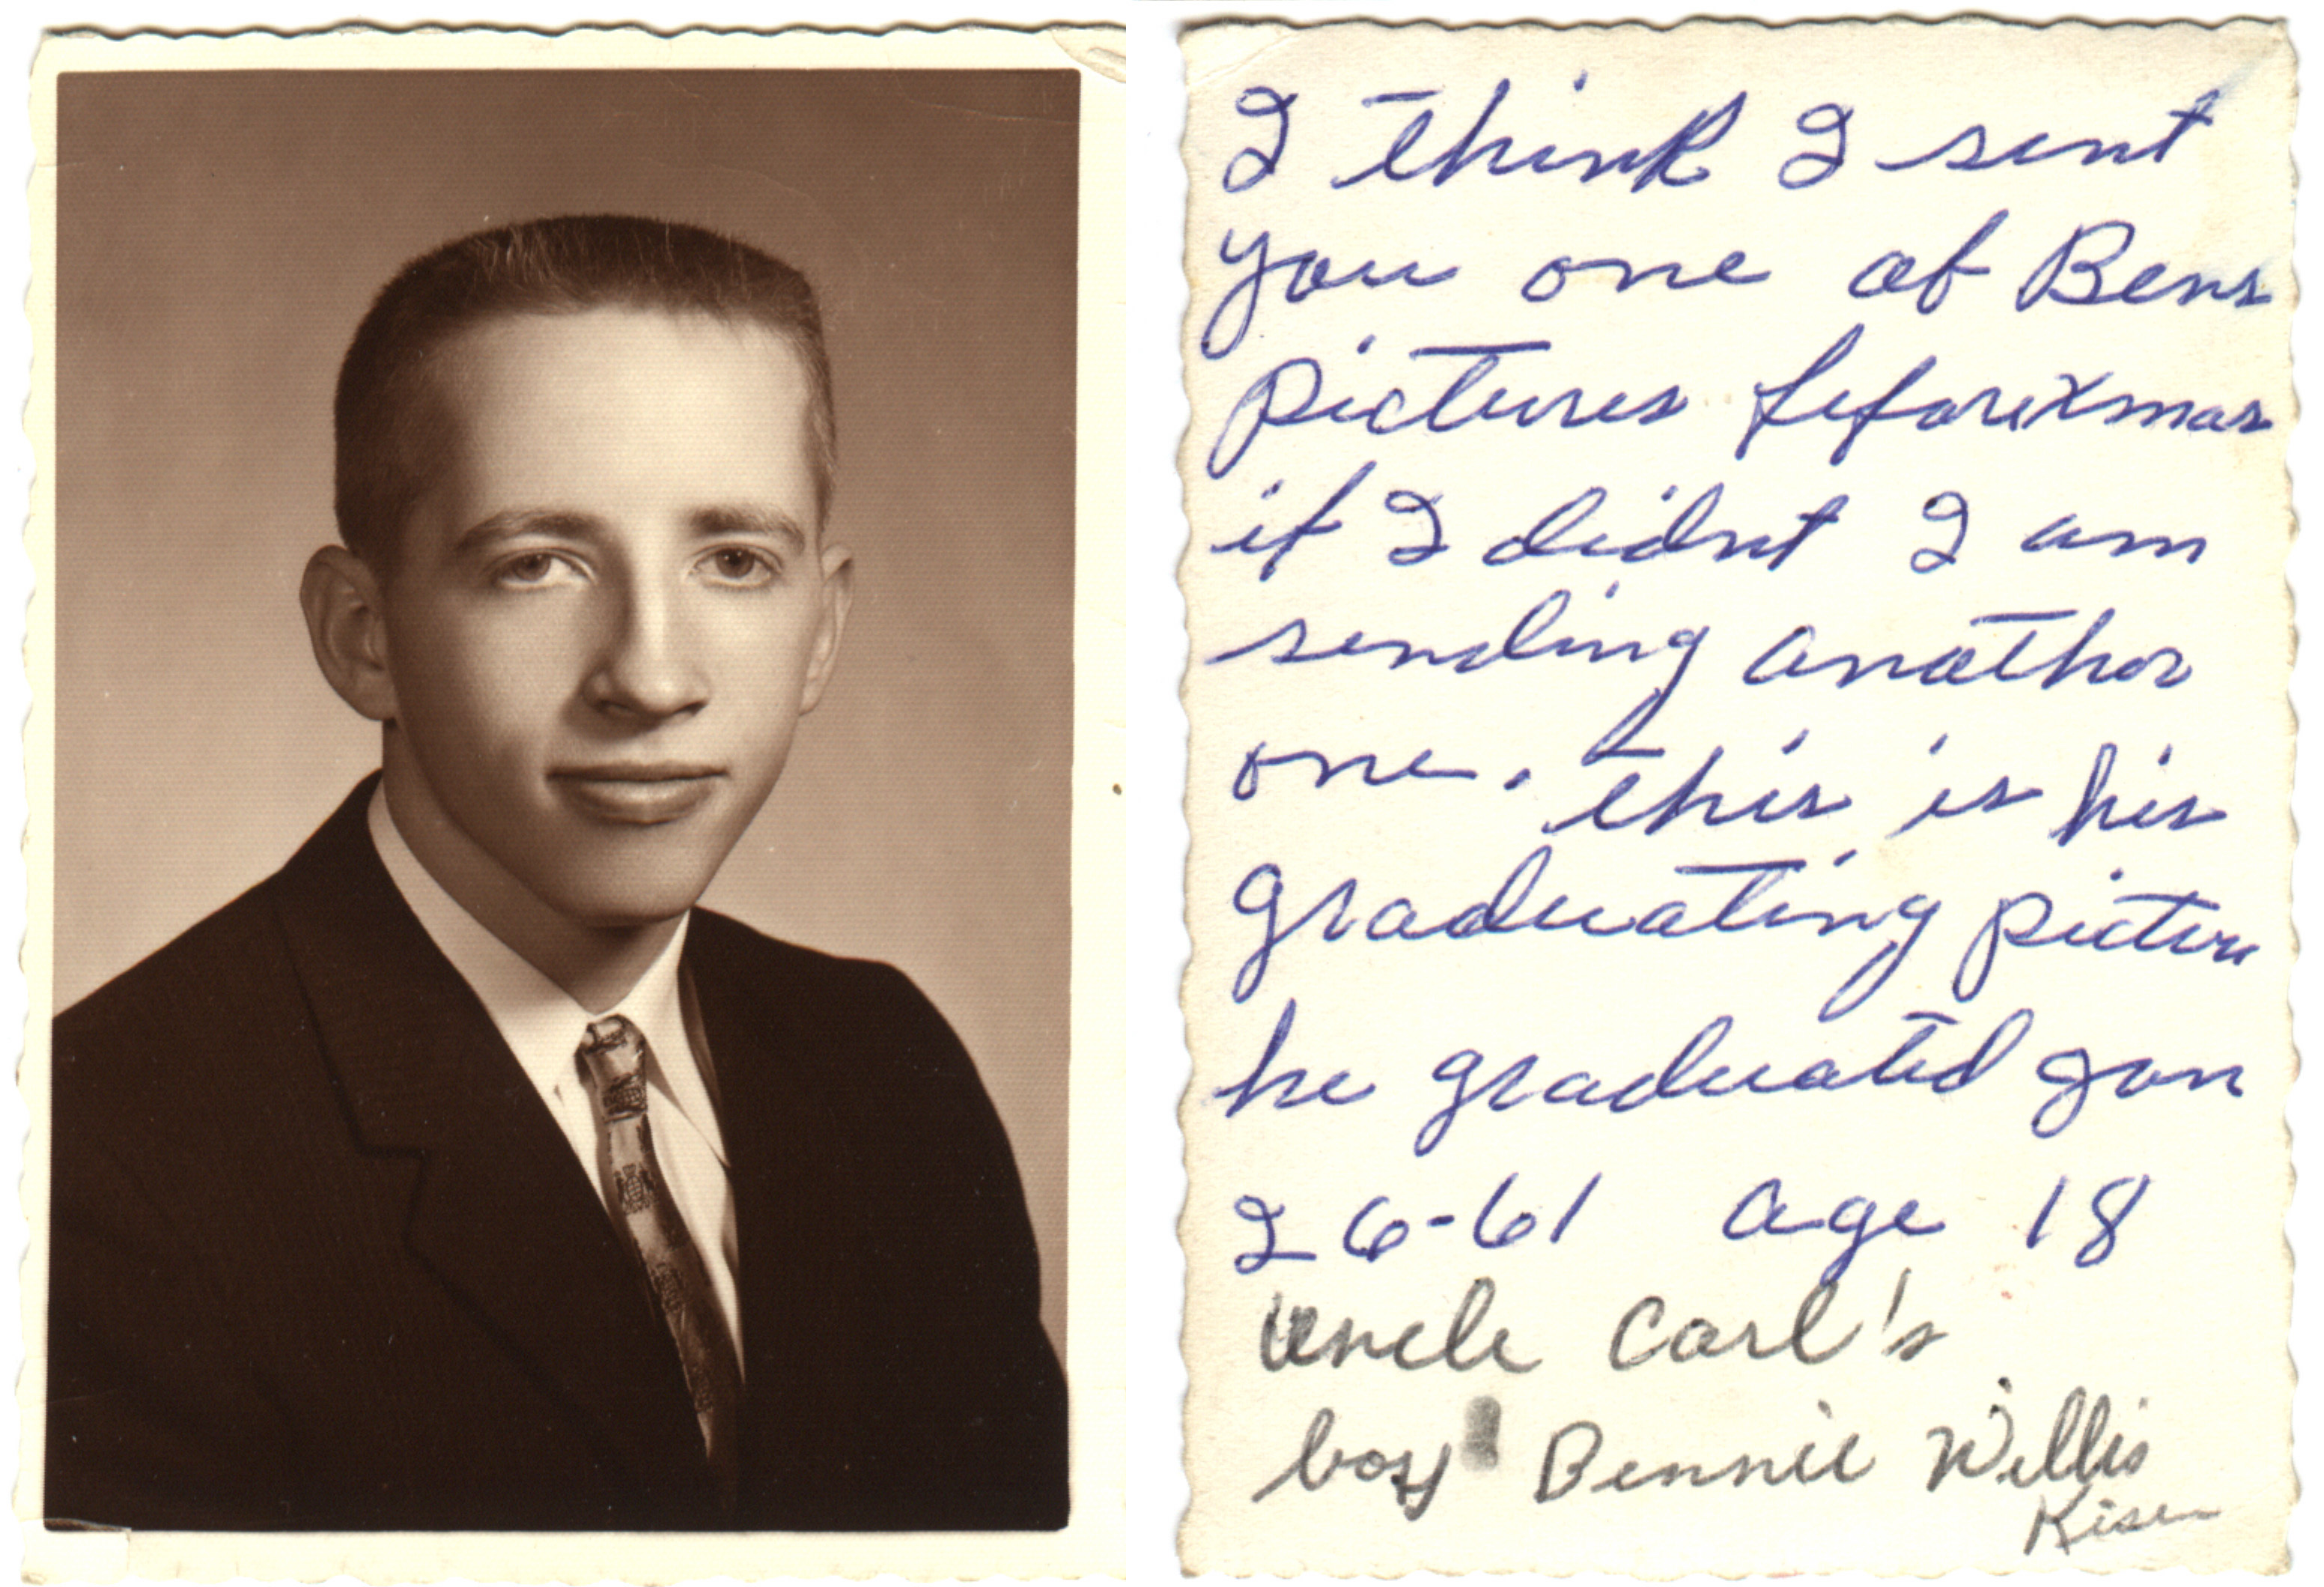 I think I sent
you one of Bens
pictures before xmas
if I didnt I am
sending another
one. this is his
graduating picture
he graduated Jan
26-61 age 18
Uncle Carl's
boy Bennie Willis
Kiser